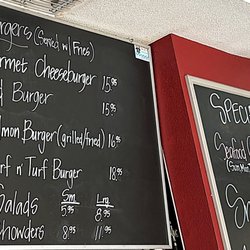 urgers (Served w/ Fries)
rmet Cheeseburger 15.95
d Burger 15.95
lmon Burger (grilled/fried) 16.95
rf n' Turf Burger 18.95
Salads Sm Lrg
5.95 8.95
Chowders 8.95 11.95
SPECI
Seafood